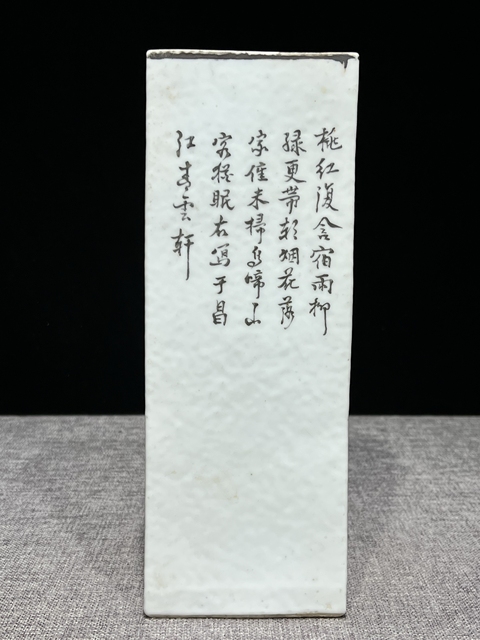 桃红復含宿雨柳
绿更帶朝烟花落
家僮未掃鸟啼山
客猶眠右寫于昌
江青雲軒